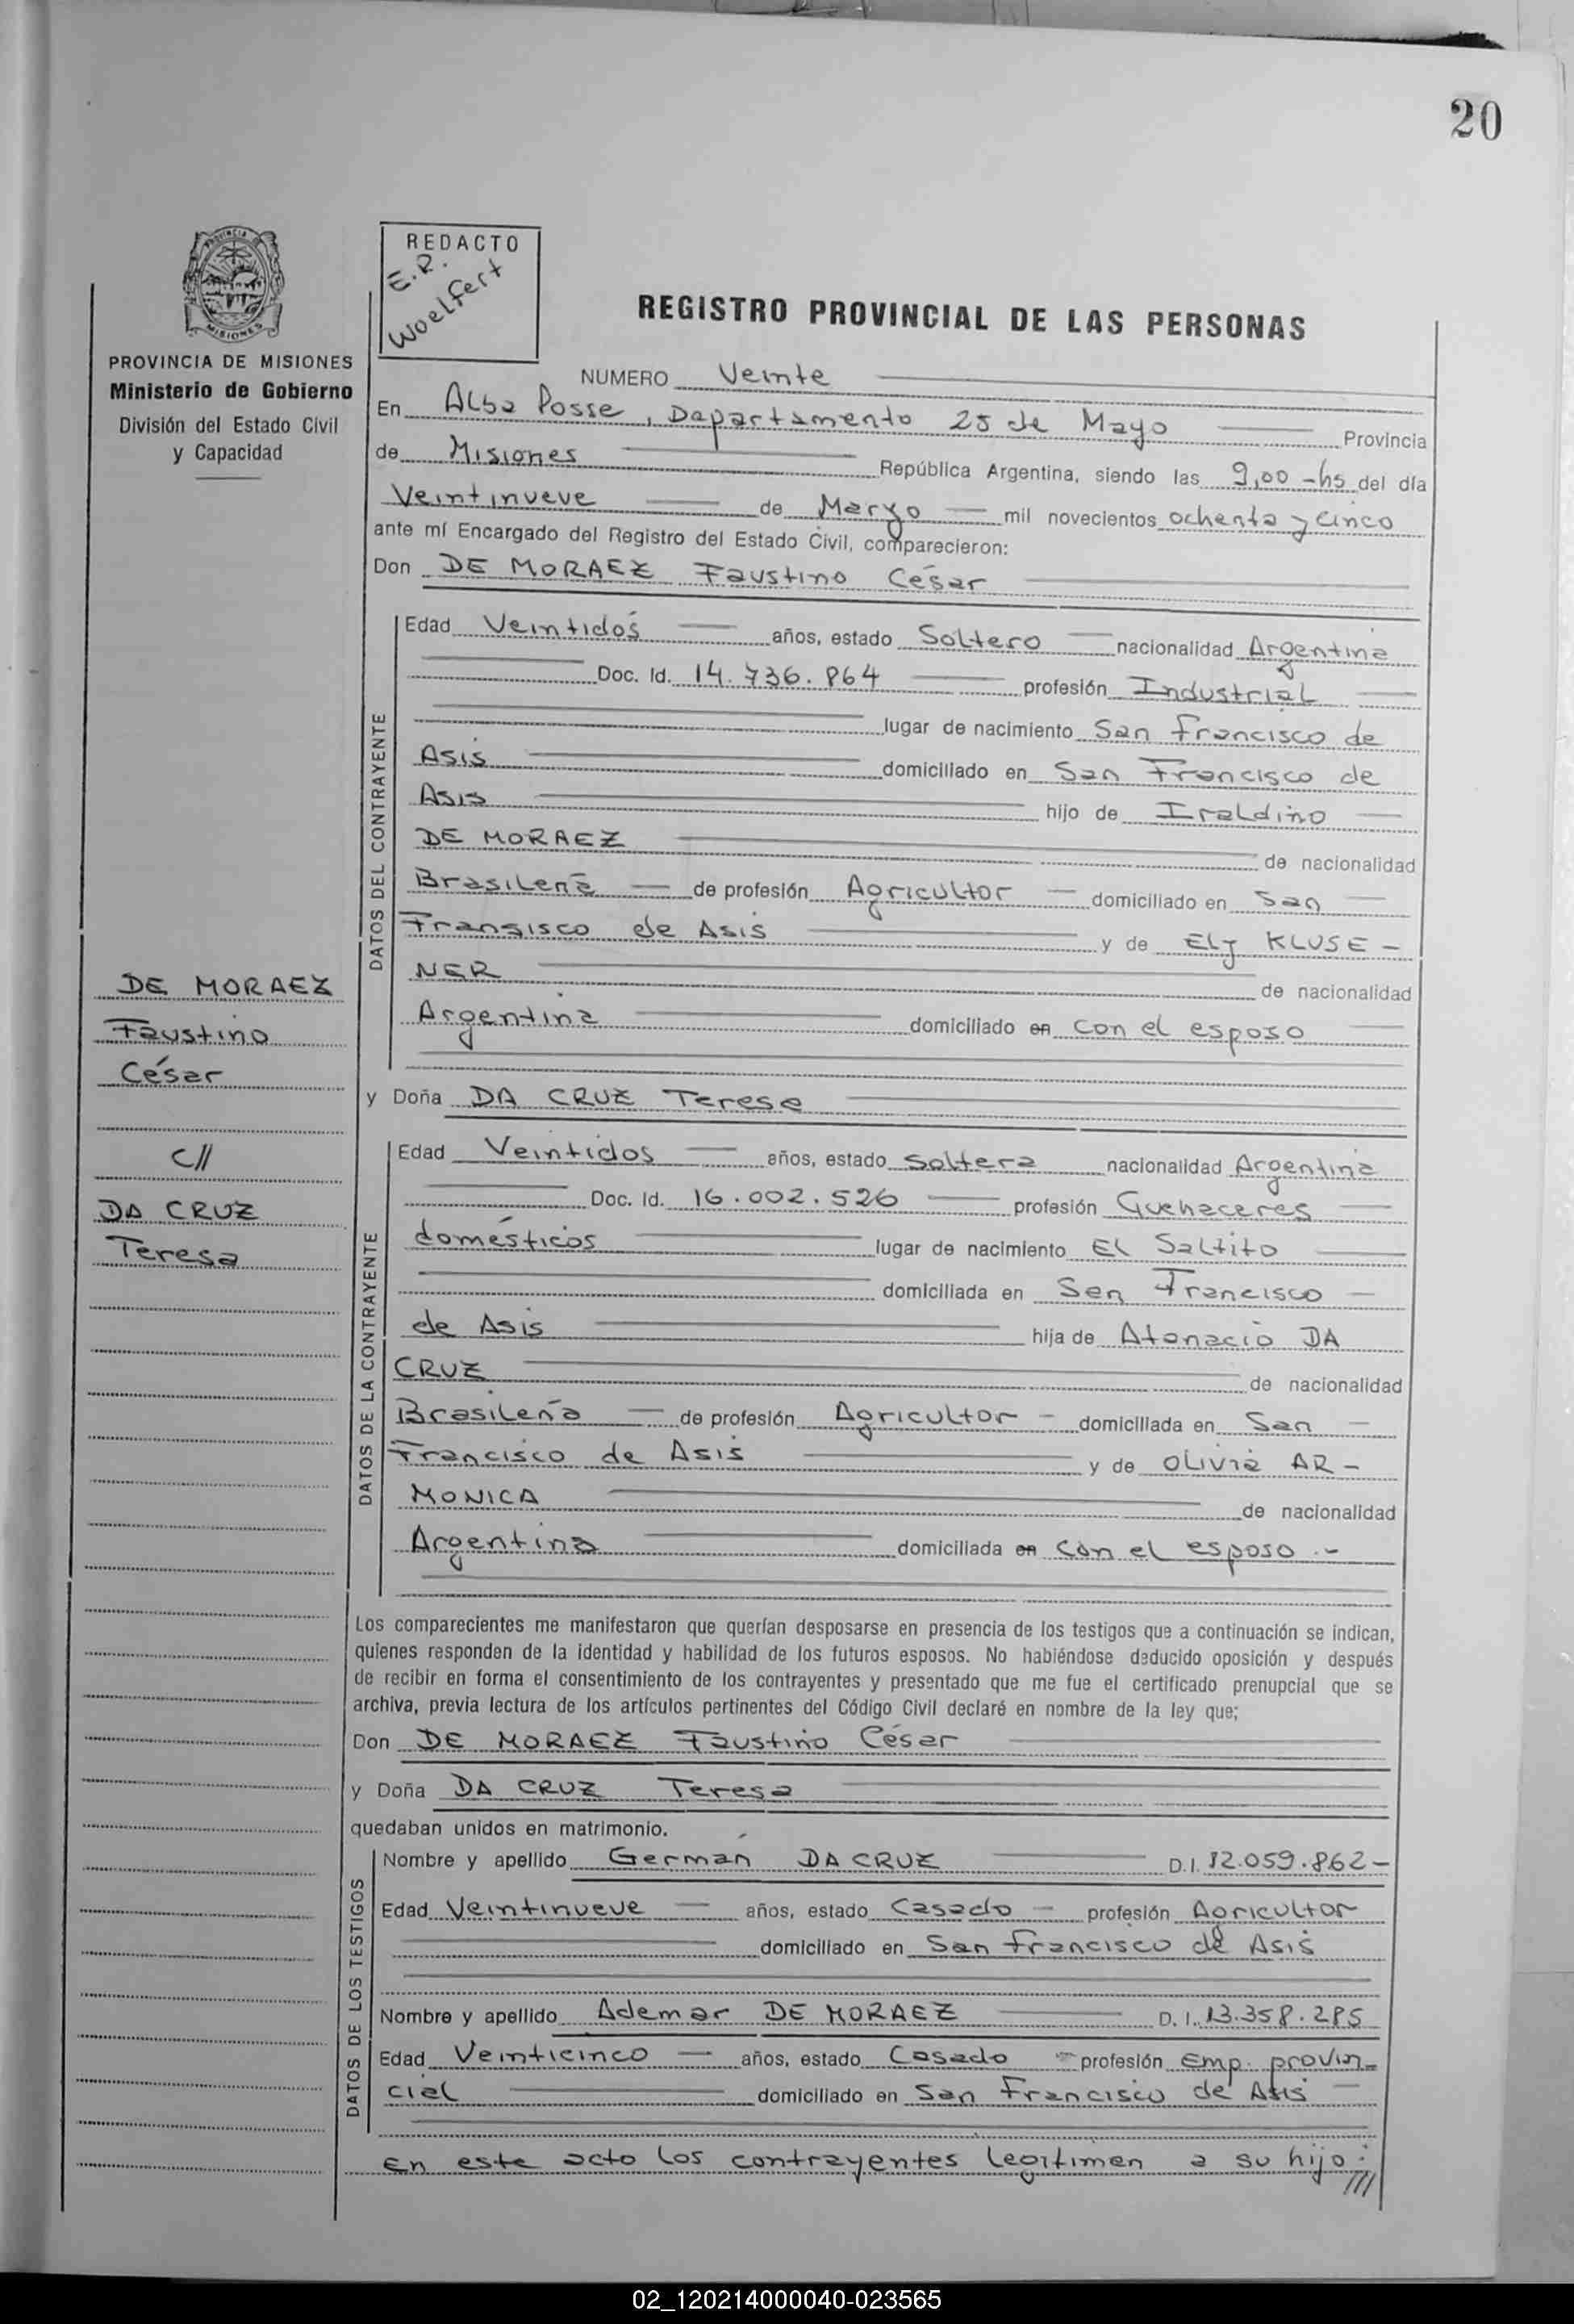 20
PROVINCIA DE
MISIONES
PROVINCIA DE MISIONES
Ministerio de Gobierno
División del Estado Civil
y Capacidad
REDACTO
E.R.
Woelfert
REGISTRO PROVINCIAL DE LAS PERSONAS
NUMERO Veinte
En Alba Posse, Departamento 25 de Mayo Provincia
de Misiones República Argentina, siendo las 9,00 -hs del día
Veintinueve de Marzo mil novecientos ochenta y cinco
ante mí Encargado del Registro del Estado Civil, comparecieron:
Don DE MORAEZ Faustino César
DATOS DEL CONTRAYENTE
Edad Veintidós años, estado Soltero nacionalidad Argentina
Doc. Id. 14.736.864 profesión Industrial
lugar de nacimiento San Francisco de
Asis domiciliado en San Francisco de
Asis hijo de Iraldino
DE MORAEZ de nacionalidad
Brasileña de profesión Agricultor domiciliado en San
Fransisco de Asis y de Ely KLUSE-
NER de nacionalidad
Argentina domiciliado en con el esposo
DE MORAEZ
Faustino
César
C//
DA CRUZ
Teresa
y Doña DA CRUZ Teresa
DATOS DE LA CONTRAYENTE
Edad Veintidos años, estado Soltera nacionalidad Argentina
Doc. Id. 16.002.526 profesión Quehaceres
domésticos lugar de nacimiento El Saltito
domiciliada en San Francisco
de Asis hija de Atanacio DA
CRUZ de nacionalidad
Brasileña de profesión Agricultor - domiciliada en San
Francisco de Asis y de Olivia AR-
MONICA de nacionalidad
Argentina domiciliada en con el esposo.-
Los comparecientes me manifestaron que querían desposarse en presencia de los testigos que a continuación se indican,
quienes responden de la identidad y habilidad de los futuros esposos. No habiéndose deducido oposición y después
de recibir en forma el consentimiento de los contrayentes y presentado que me fue el certificado prenupcial que se
archiva, previa lectura de los artículos pertinentes del Código Civil declaré en nombre de la ley que;
Don DE MORAEZ Faustino César
y Doña DA CRUZ Teresa
quedaban unidos en matrimonio.
DATOS DE LOS TESTIGOS
Nombre y apellido Germán DA CRUZ D.I. 12.059.862-
Edad Veintinueve años, estado Casado - profesión Agricultor
domiciliado en San Francisco de Asis
Nombre y apellido Ademar DE MORAEZ D.I. 13.358.285
Edad Veinticinco años, estado Casado - profesión Emp. provin-
cial domiciliado en San Francisco de Asis
En este acto los contrayentes legitiman a su hijo:
///
02_120214000040-023565